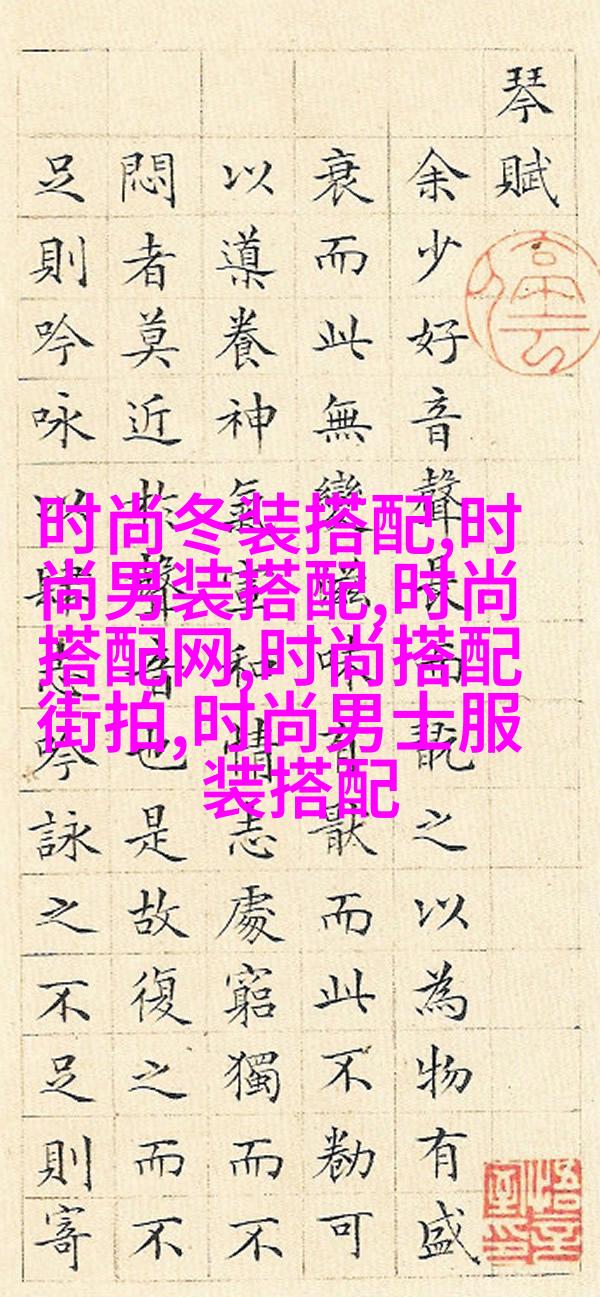 琴賦
余少好音聲長而翫之以為物有盛
衰而此無變滋味有猒而此不勌可
以導養神氣宣和情志處窮獨而不
悶者莫近於聲音也是故復之而不
足則吟咏以肆志吟詠之不足則寄
时尚冬装搭配,时
尚男装搭配,时尚
搭配网,时尚搭配
街拍,时尚男士服
装搭配